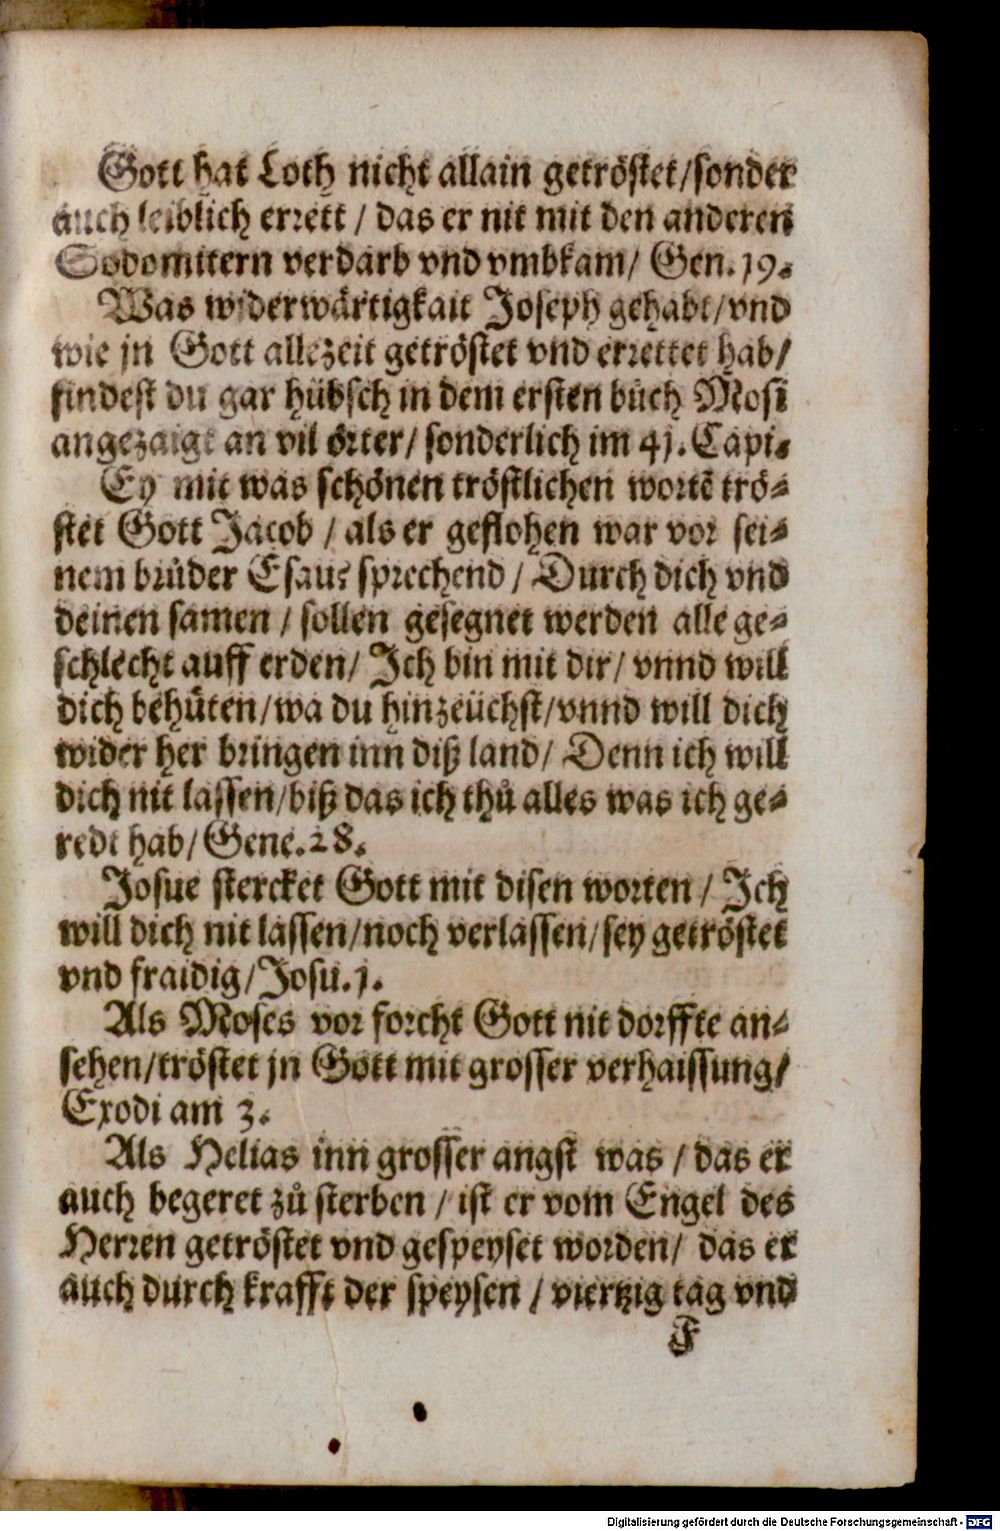 Gott hat Loth nicht allain getröstet/sonder
auch leiblich errett / das er nit mit den anderen
Sodomitern verdarb vnd vmbkam/ Gen. 19.
Was widerwärtigkait Joseph gehabt/vnd
wie jn Gott allezeit getröstet vnd errettet hab/
findest du gar hübsch in dem ersten bůch Mosi
angezaigt an vil örter/ sonderlich im 41. Capi.
Ey mit was schönen tröstlichen wortē trö-
stet Gott Jacob / als er geflohen war vor sei-
nem brůder Esau? sprechend / Durch dich vnd
deinen samen / sollen gesegnet werden alle ge-
schlecht auff erden/ Ich bin mit dir/ vnnd will
dich behüten/wa du hinzeüchst/vnnd will dich
wider her bringen inn diß land/ Denn ich will
dich nit lassen/biß das ich thů alles was ich ge-
redt hab/ Gene.28.
Josue stercket Gott mit disen worten / Ich
will dich nit lassen/noch verlassen/sey getröstet
vnd fraidig/Josu.1.
Als Moses vor forcht Gott nit dorffte an-
sehen/tröstet jn Gott mit grosser verhaissung/
Exodi am 3.
Als Helias inn grosser angst was / das er
auch begeret zů sterben / ist er vom Engel des
Herren getröstet vnd gespeyset worden/ das er
auch durch krafft der speysen / viertzig tag vnd
F
Digitalisierung gefördert durch die Deutsche Forschungsgemeinschaft - DFG